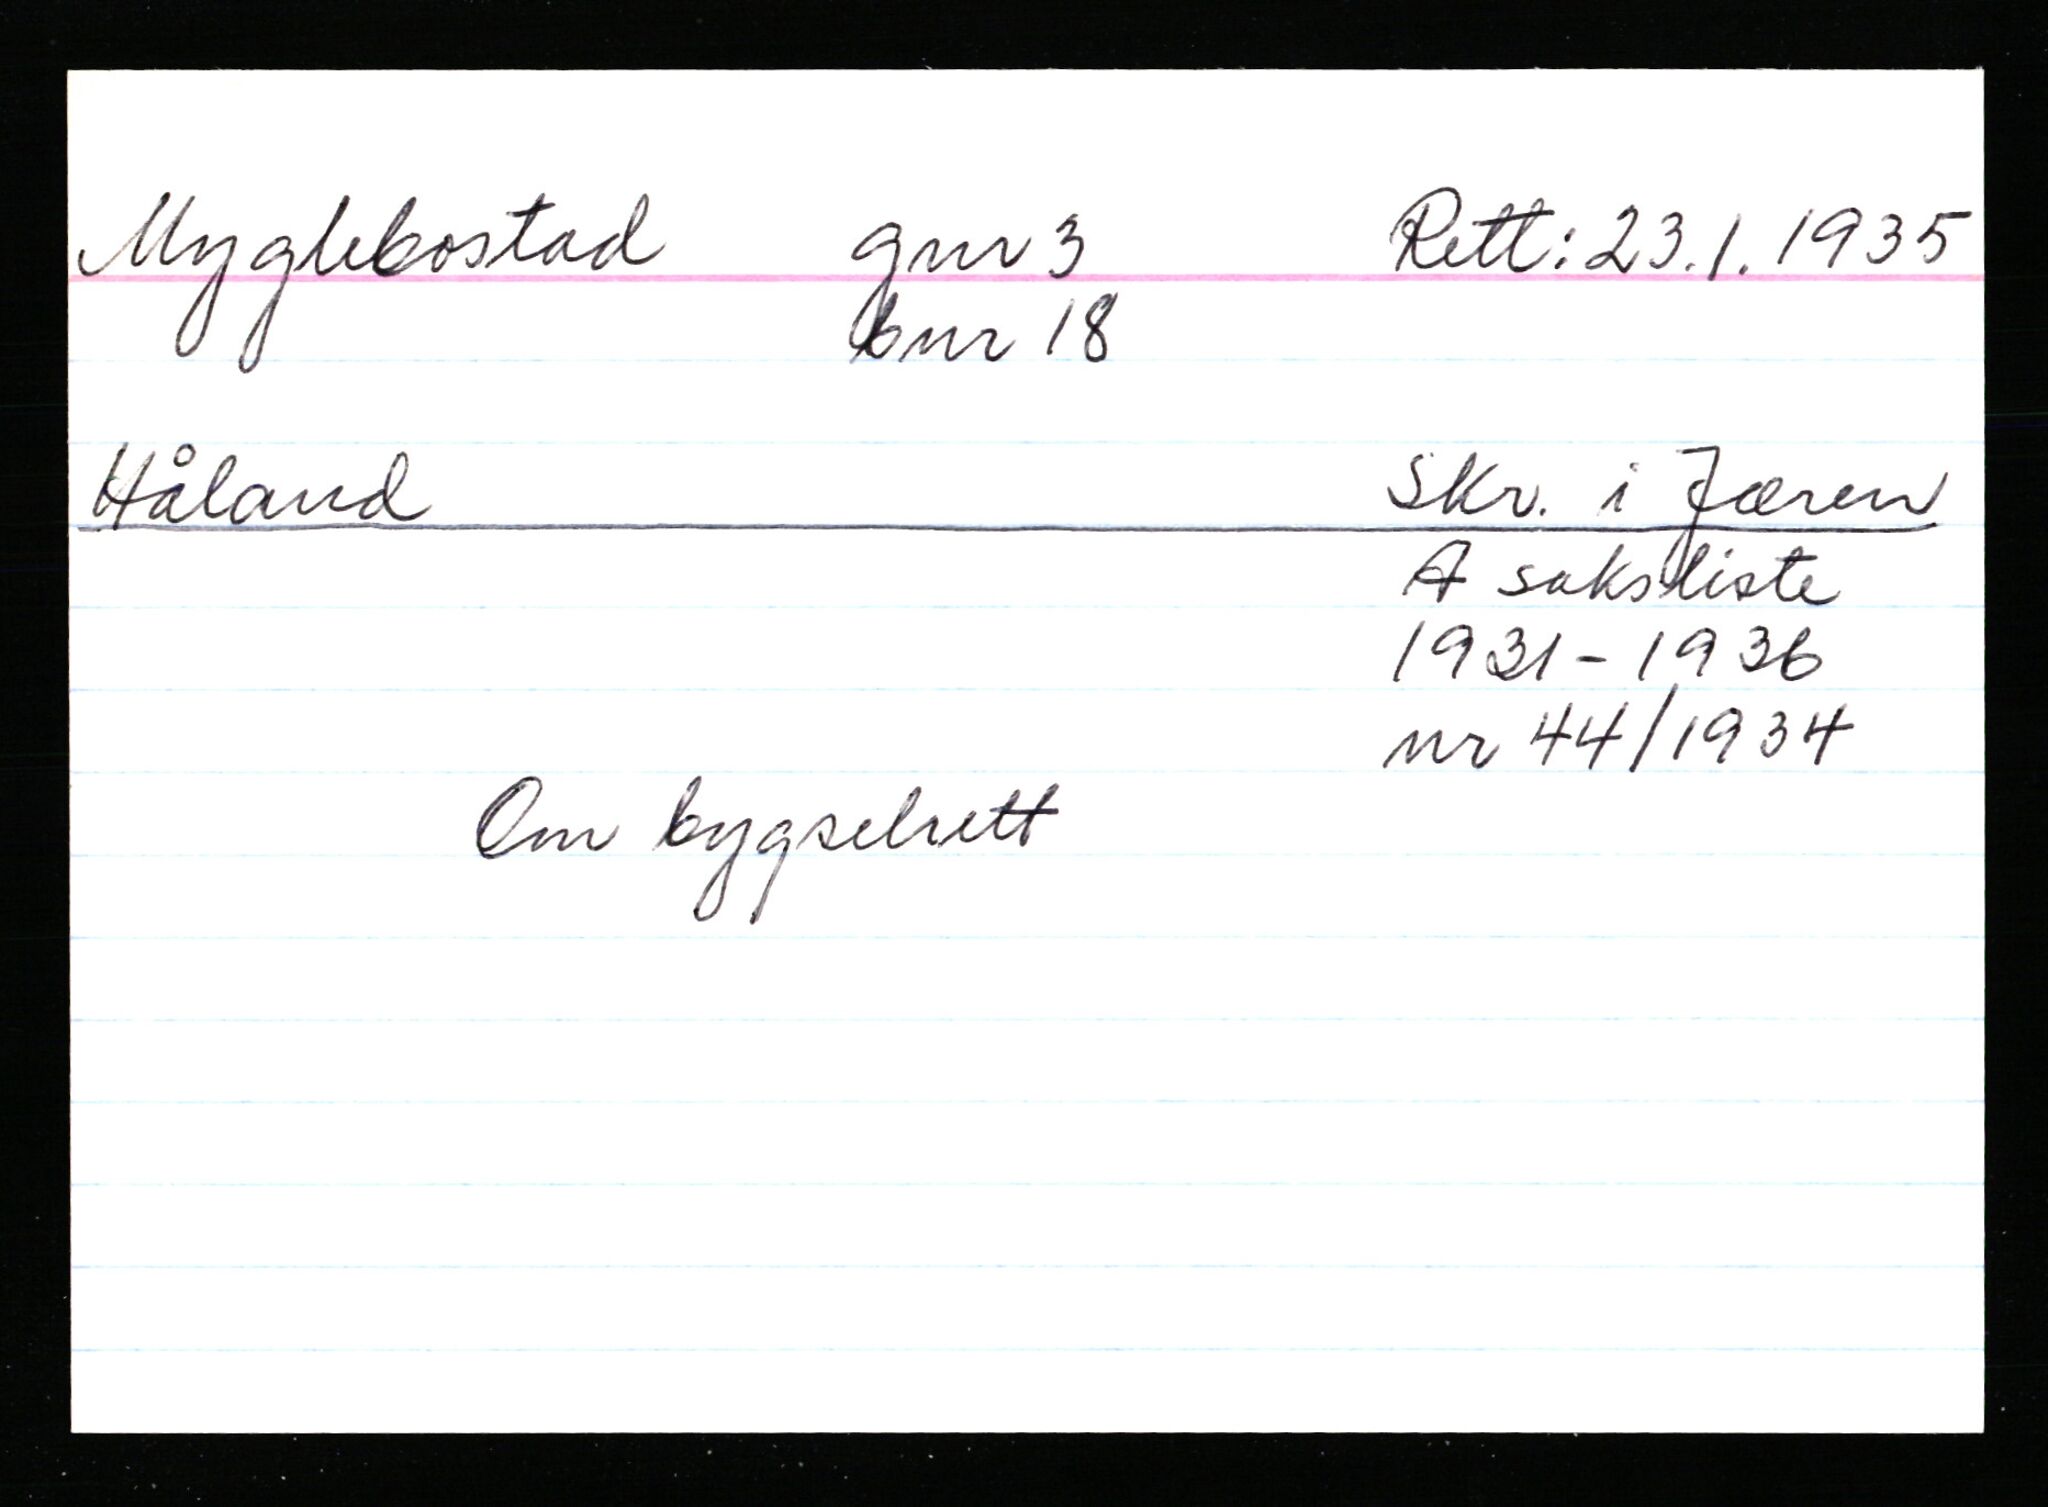 Myglebostad gnr 3 Rett: 23.1.1935
bnr 18
Håland Skr. i Jæren
A saksliste
1931-1936
nr 44/1934
Om bygselrett